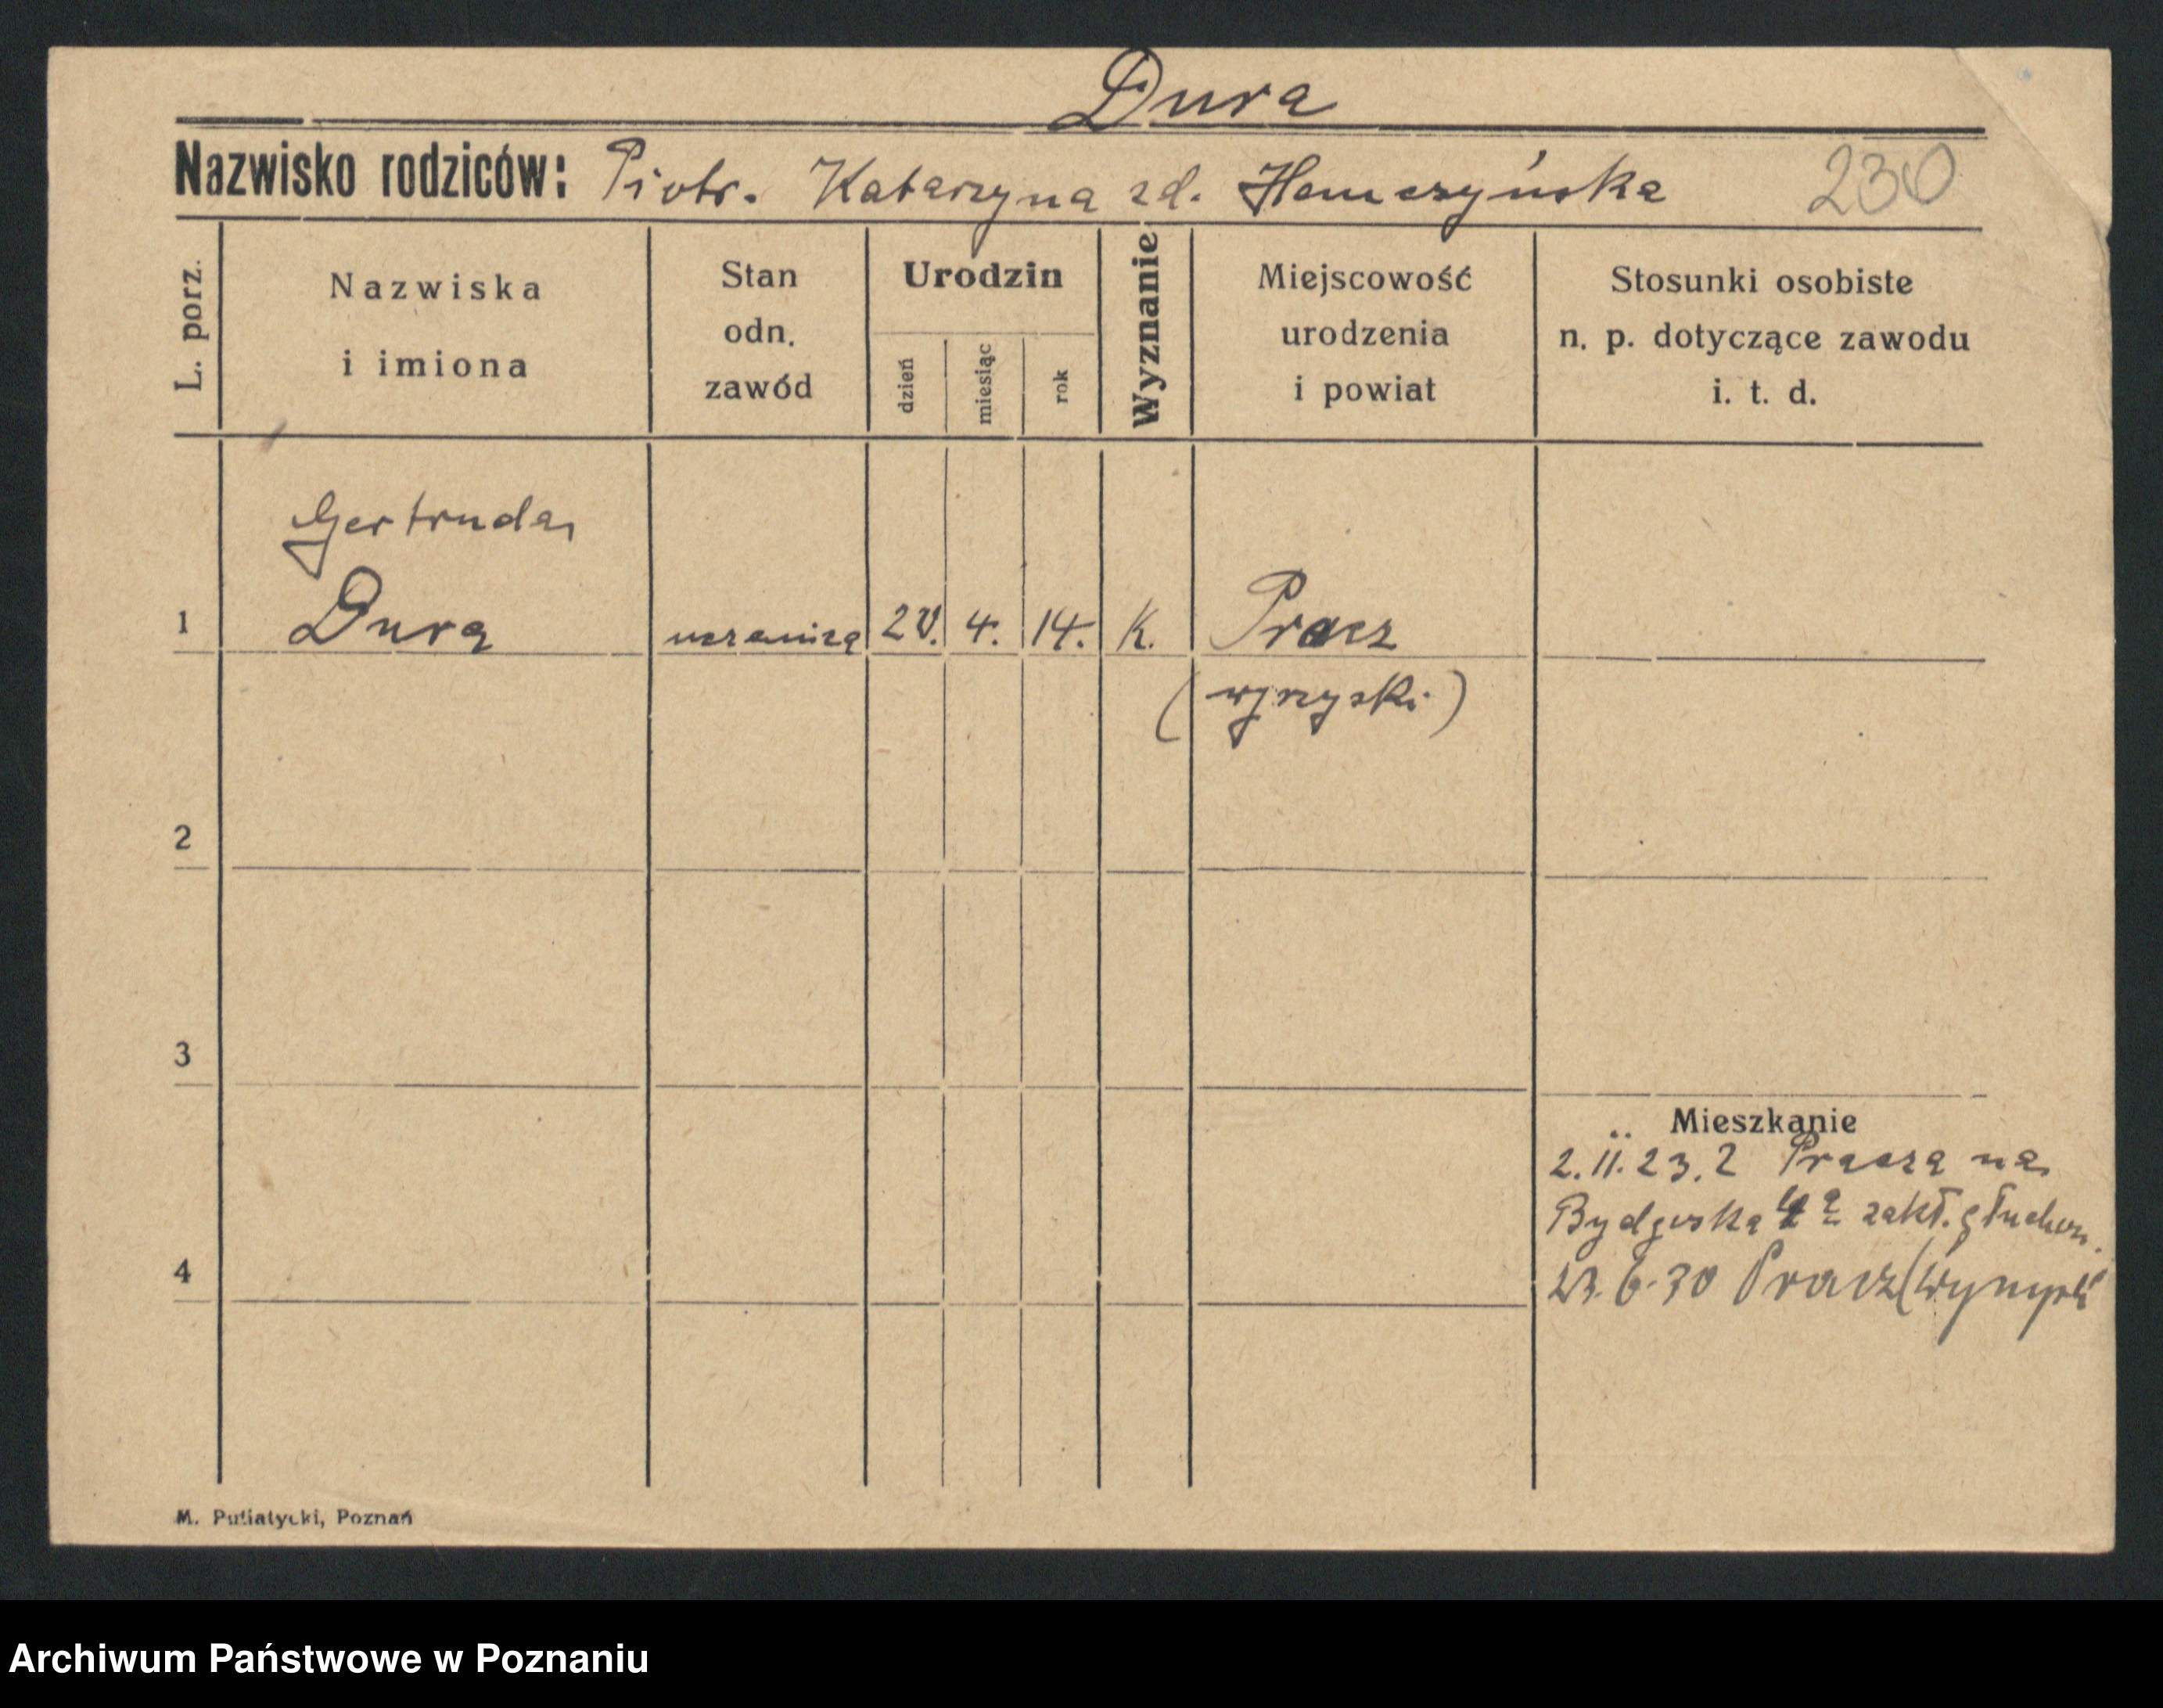 Dura
Nazwisko rodziców: Piotr. Katarzyna zd. Hemczyńska 230
L. porz.
Nazwiska
i imiona
Stan
odn.
zawód
Urodzin
dzień
miesiąc
rok
Wyznanie
Miejscowość
urodzenia
i powiat
Stosunki osobiste
n. p. dotyczące zawodu
i. t. d.
Gertruda
1 Dura uczenica 20. 4. 14. K. Pracz
(wyrzyski)
2
3
Mieszkanie
2. 11. 23. z Pracza na
Bydgoska 4a zakł. głuchon.
4 23. 6. 30 Pracz
M. Putiatycki, Poznań
Archiwum Państwowe w Poznaniu